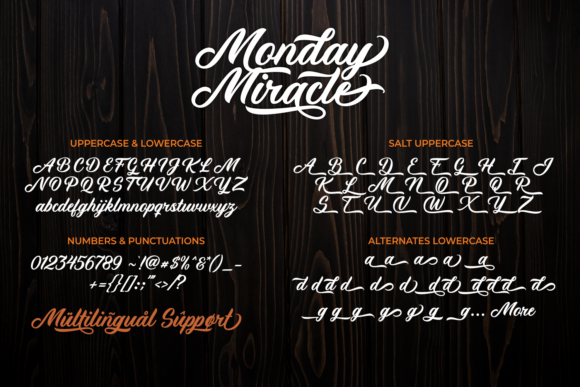 Monday
Miracle
UPPERCASE & LOWERCASE
A B C D E F G H I J K L M
N O P Q R S T U V W X Y Z
abcdefghijklmnopqrstuvwxyz
NUMBERS & PUNCTUATIONS
0123456789 ~!@#$%^&*()_-
+={}[]:;"'<>/?
Multilingual Support
SALT UPPERCASE
A B C D E F G H I J
K L M N O P Q R
S T U V W X Y Z
ALTERNATES LOWERCASE
a a a a a
d d d d d d d d d d d d
g g g g g g g... More